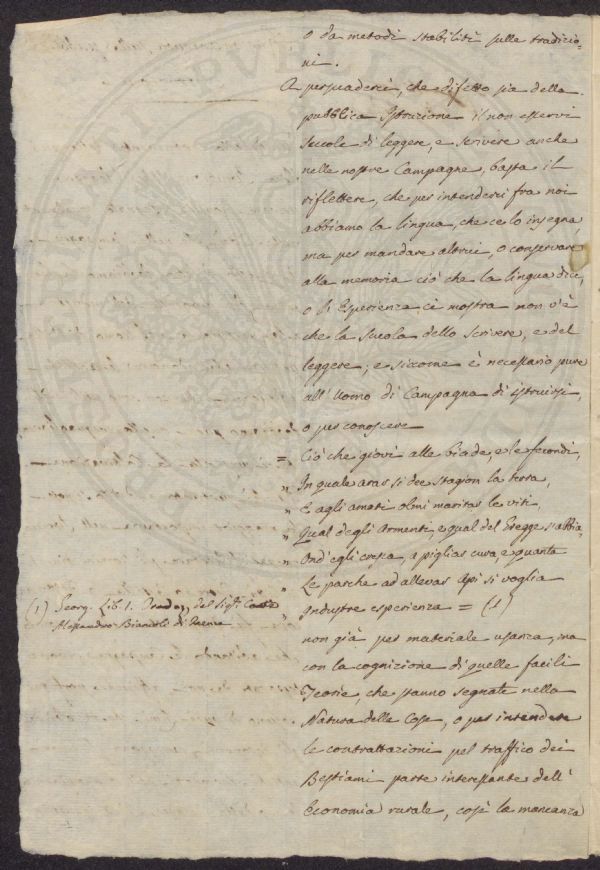 o da metodi stabiliti sulle tradizio-
ni.
A persuaderci, che difetto sia della
pubblica Istruzione il non esservi
Scuole di leggere, e scrivere anche
nelle nostre Campagne, basta il
riflettere, che per intenderci fra noi
abbiamo la lingua, che ce lo insegna,
ma per mandare altrui, o conservare
alla memoria ciò che la lingua dice,
o l'Esperienza ci mostra non v'è
che la Scuola dello scrivere, e del
leggere, e siccome è necessario pure
all'Uomo di Campagna di istruirsi,
o per conoscere
= Ciò che giovi alle biade, e le fecondi,
" In quale aras si dee stagion la terra,
" E agli amati olmi maritar le viti,
" Qual degli Armenti, e qual del Gregge s'abbia,
" Ond'egli cresca, a pigliar cura, e quanta
" Le parche ad allevar Api si voglia
" Industre esperienza = (1)
(1) Georg. Lib. 1. del Sig.r Conte
Alessandro Biancoli di
non già per materiale usanza, ma
con la cognizione di quelle facili
Teorie, che stanno segnate nella
Natura delle Cose, o per intendere
le contrattazioni pel traffico dei
Bestiami parte interessante dell'
Economia rurale, così la mancanza